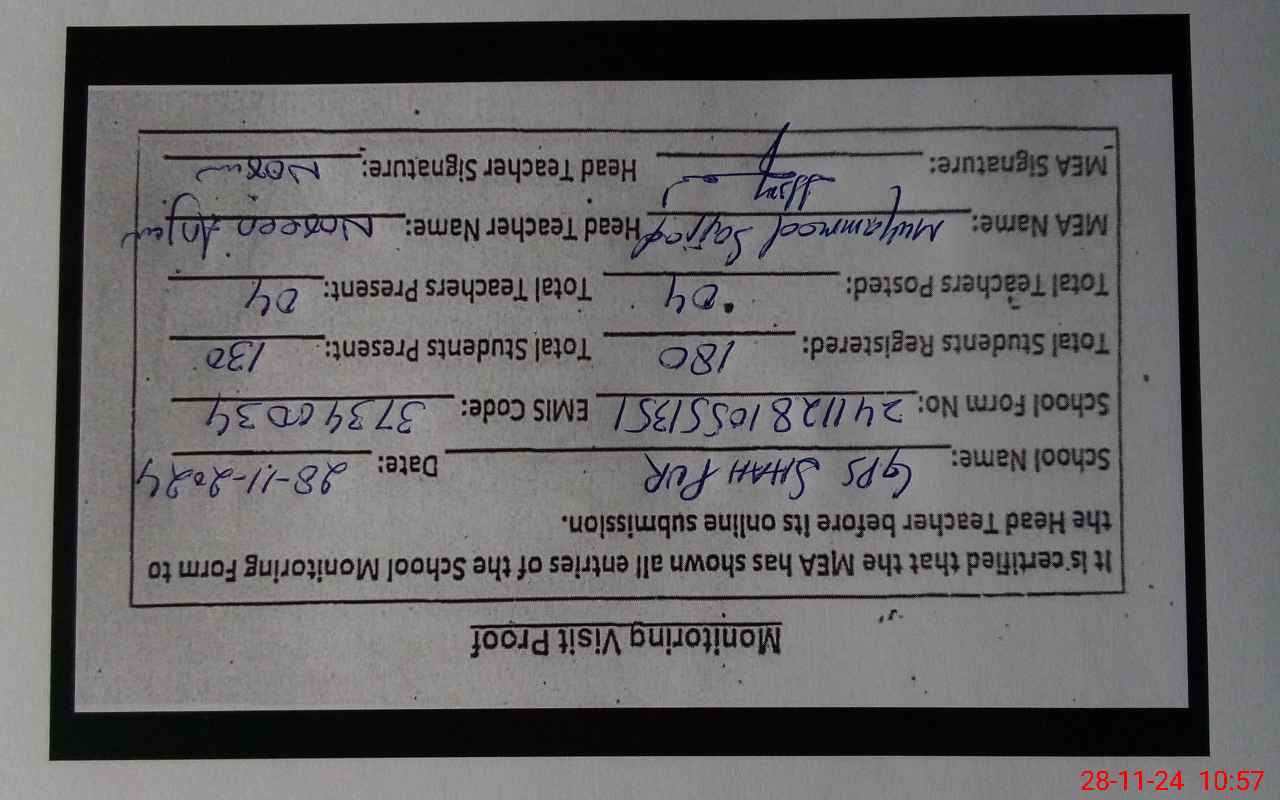 Monitoring Visit Proof
It is certified that the MEA has shown all entries of the School Monitoring Form to
the Head Teacher before its online submission.
School Name: GPS SHAH PUR Date: 28-11-2024
School Form No: 24112810551351 EMIS Code: 37340034
Total Students Registered: 180 Total Students Present: 130
Total Teachers Posted: 04 Total Teachers Present: 04
MEA Name: Muhammad Sajjad Head Teacher Name: Noreen Anjum
MEA Signature: Head Teacher Signature:
28-11-24 10:57